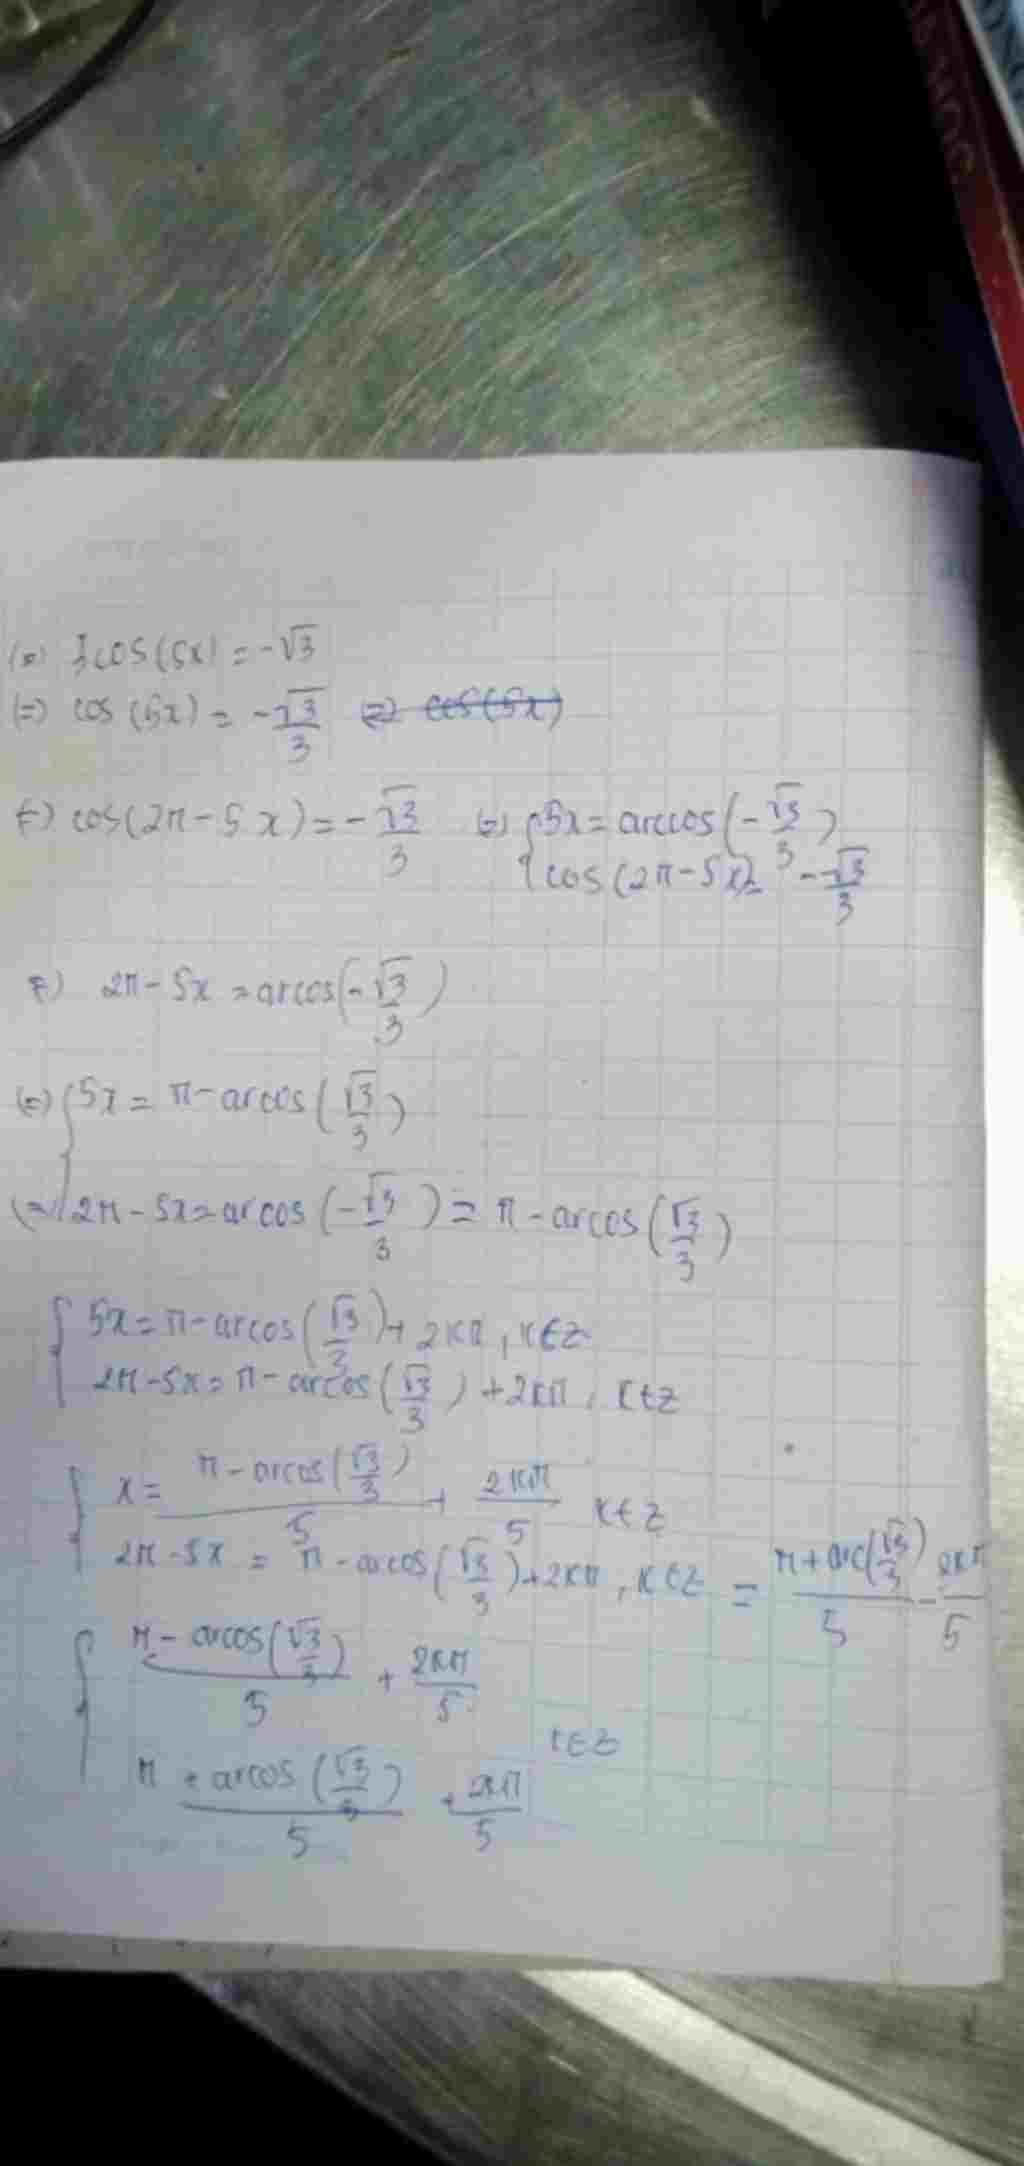 (=) 3cos(5x) = -√3
(=) cos(5x) = -√3/3 (=) cos(5x)
(=) cos(2π - 5x) = -√3/3 (=) { 5x = arccos(-√3/3)
cos(2π - 5x) = -√3/3
(=) 2π - 5x = arcos(-√3/3)
(=) { 5x = π - arcos(√3/3)
(=) 2π - 5x = arcos(-√3/3) = π - arcos(√3/3)
{ 5x = π - arcos(√3/3) + 2kπ, k∈z
2π - 5x = π - arcos(√3/3) + 2kπ, k∈z
{ x = π - arcos(√3/3)/5 + 2kπ/5 k∈z
2π - 5x = π - arcos(√3/3) + 2kπ, k∈z = π + arc(√3/3)/5 - 2kπ/5
{ π - arcos(√3/3)/5 + 2kπ/5
k∈z
π + arcos(√3/3)/5 + 2kπ/5